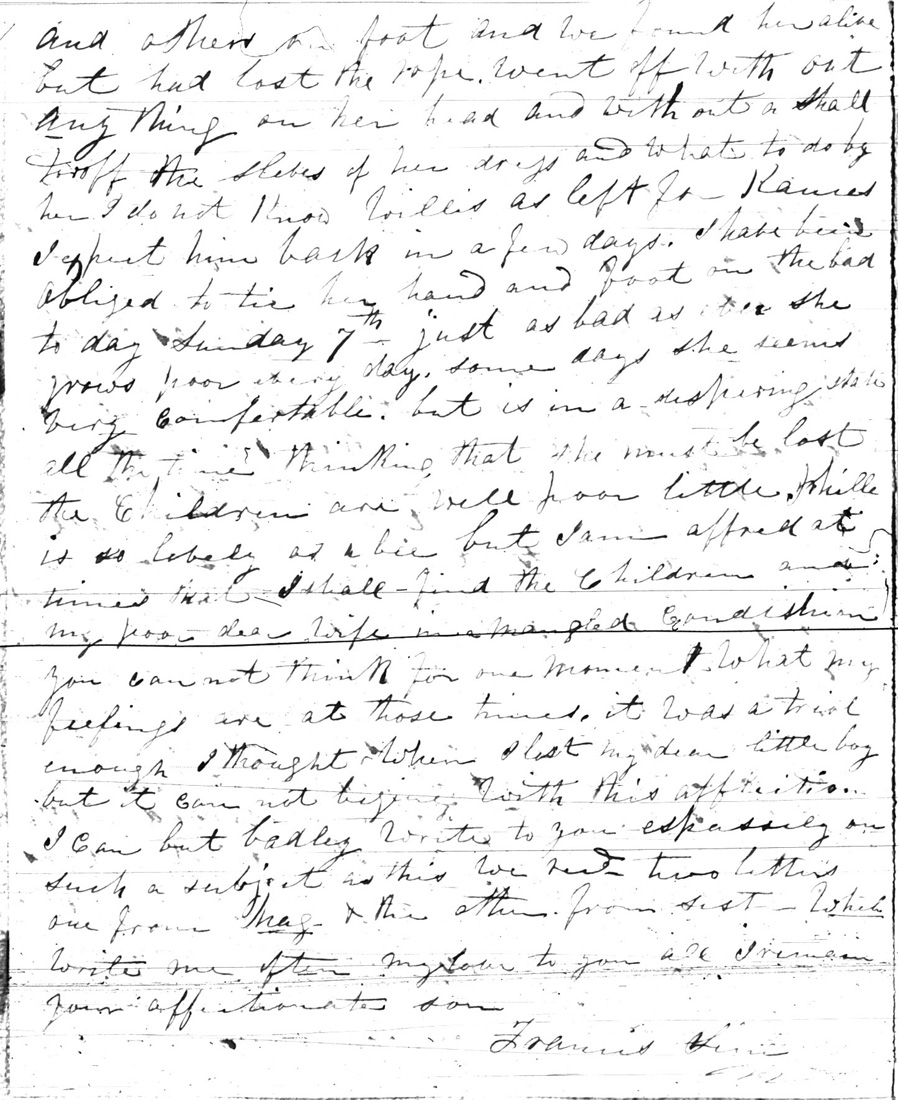 and others on foot and we found her alive
but had lost the rope. went off with out
any thing on her head and with out a shall
toroff the slebes of her dress and what to do by
her I do not know Willis as left for Kances
I expect him back in a few days. I have been
obliged to tie her hand and foot on the bad
to day Sunday 7th just as bad as ever she
grows poor every day. some days she seems
very comfertable. but is in a dispering state
all the time thinking that she must be lost
the Children are well poor little Whille
is so libely as a bee but I am affred at
times that I shall find the Children and
my poor dear wife in a mangled Condishion
you can not think for one moment What my
feelings are at those times. it was a trial
enough I thought When I lost my dear little boy
but it can not bigin With this affliction
I can but badley Write to you espassily on
such a subject as this We recd two letters
one from Mag & the other from sist Which
Write me often my love to you all I remain
your affectionate son
Francis